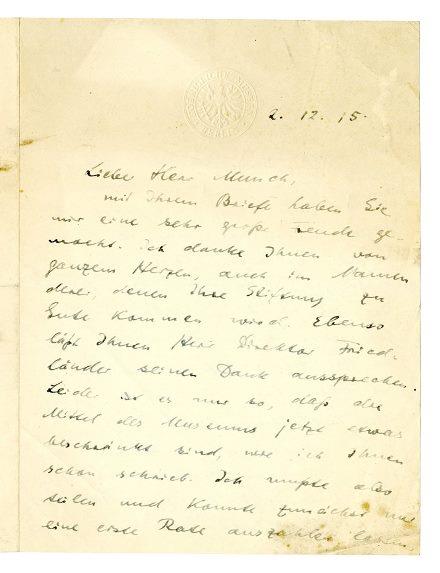 2. 12. 15.
Lieber Herr Munch,
mit Ihrem Briefe haben Sie
mir eine sehr große ge-
macht. Ich danke Ihnen von
ganzem Herzen, auch im Namen
derer, denen Ihre Stiftung zu
Gute kommen wird. Ebenso
läßt Ihnen Herr Direktor Fried-
länder seinen Dank aussprechen.
Leider ist es nur so, daß die
Mittel des Museums jetzt etwas
beschränkt sind, wie ich Ihnen
schon schrieb. Ich mußte also
teilen und konnte zunächst nur
eine erste Rate auszahlen lassen